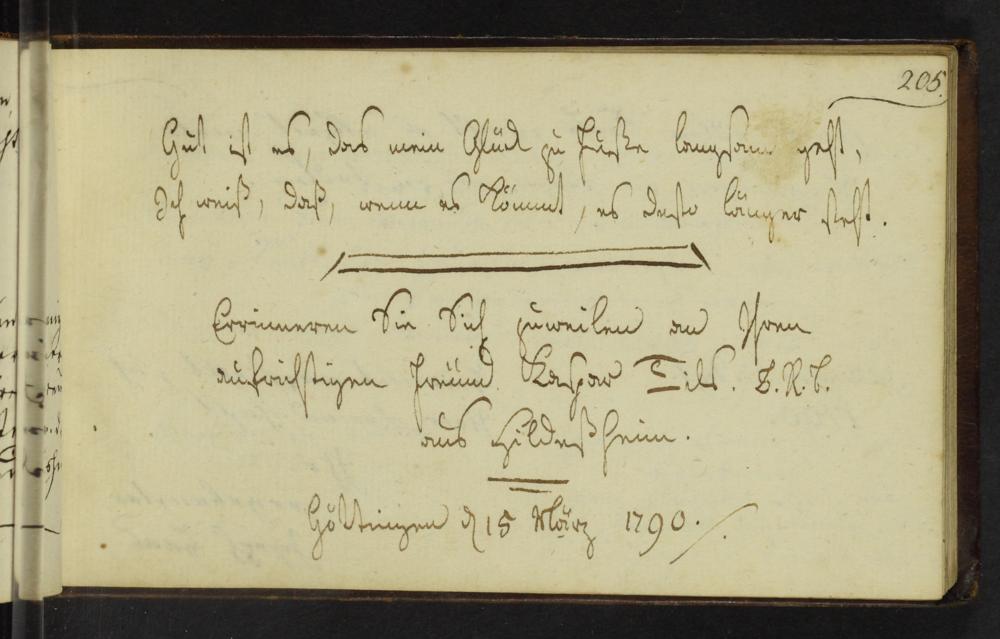 205.
Gut ist es, das mein Glück zu Fuße langsam geht,
Ich weiß, daß, wenn es kömmt, es desto länger steht.
Errinneren Sie Sich zuweilen an Ihren
aufrichtigen Freund. Kaspar Tils.
aus Hildeßheim.
Göttingen d 15 März 1790.